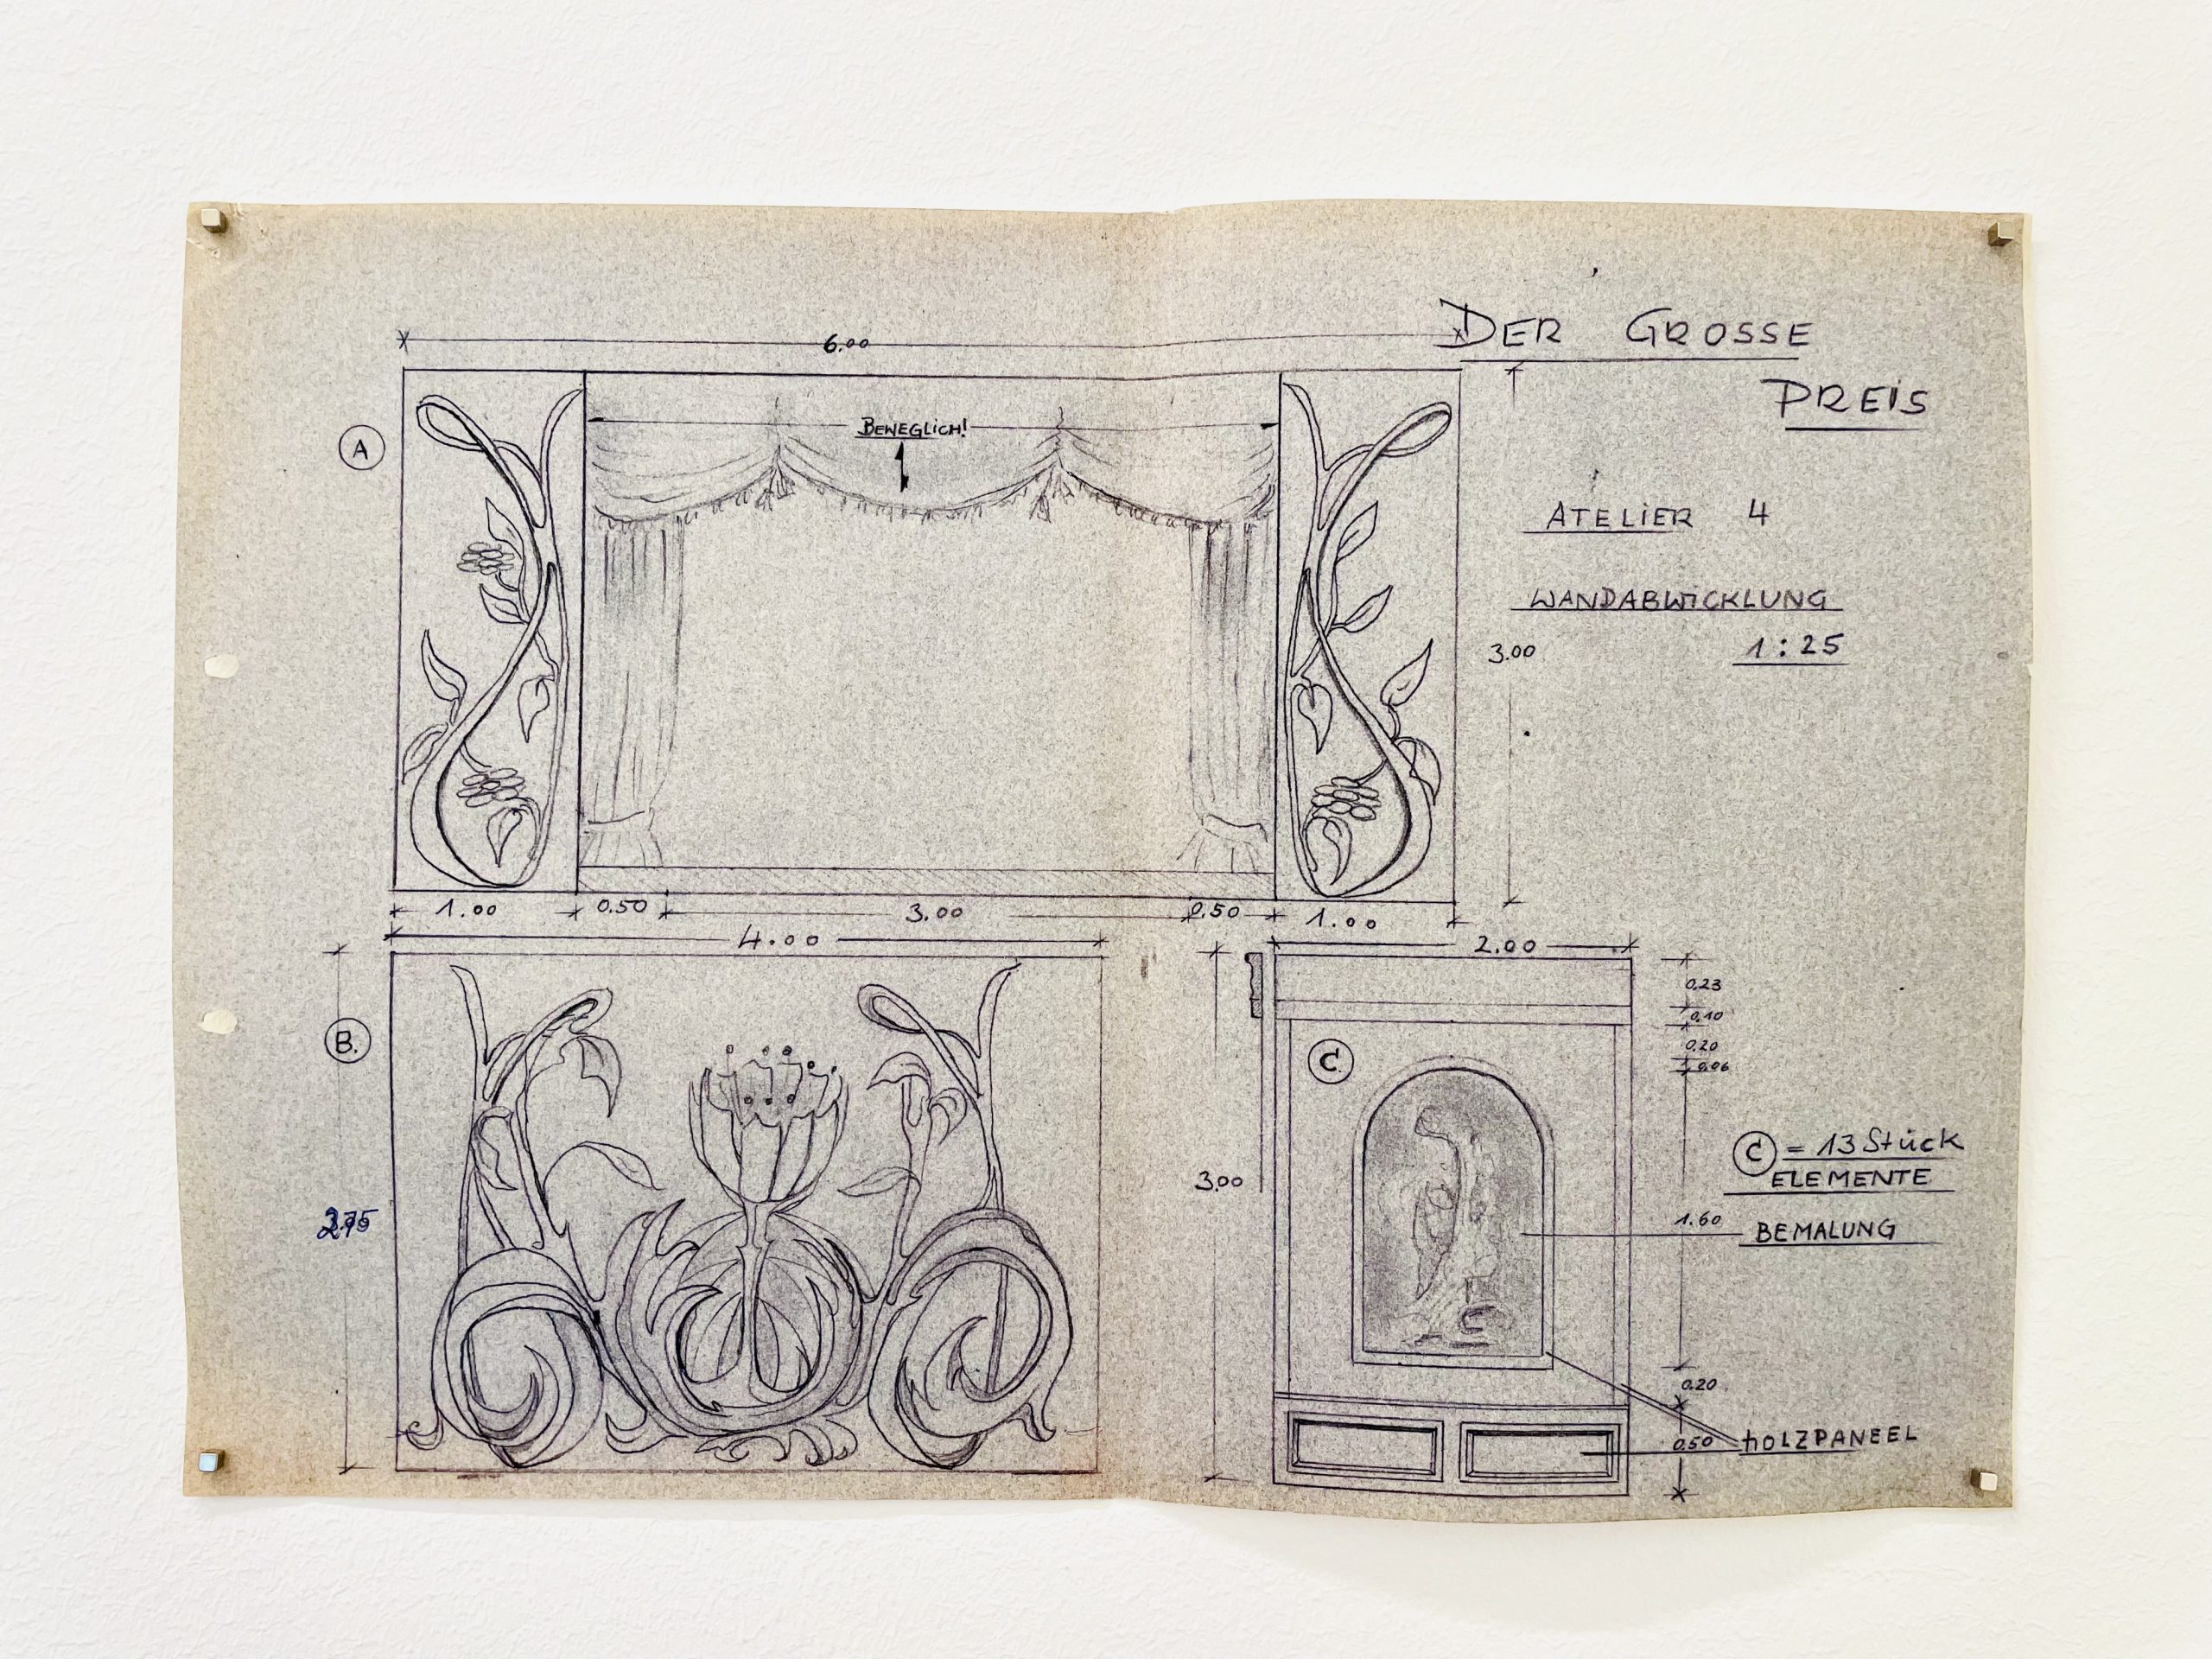 DER GROSSE
PREIS
ATELIER 4
WANDABWICKLUNG
1:25
6.00
A
BEWEGLICH!
3.00
1.00 0.50 3.00 0.50 1.00
4.00
B.
2.00
0.23
0.10
0.20
0.06
C.
3.00
C = 13 Stück
ELEMENTE
1.60
BEMALUNG
0.20
0.50
HOLZPANEEL